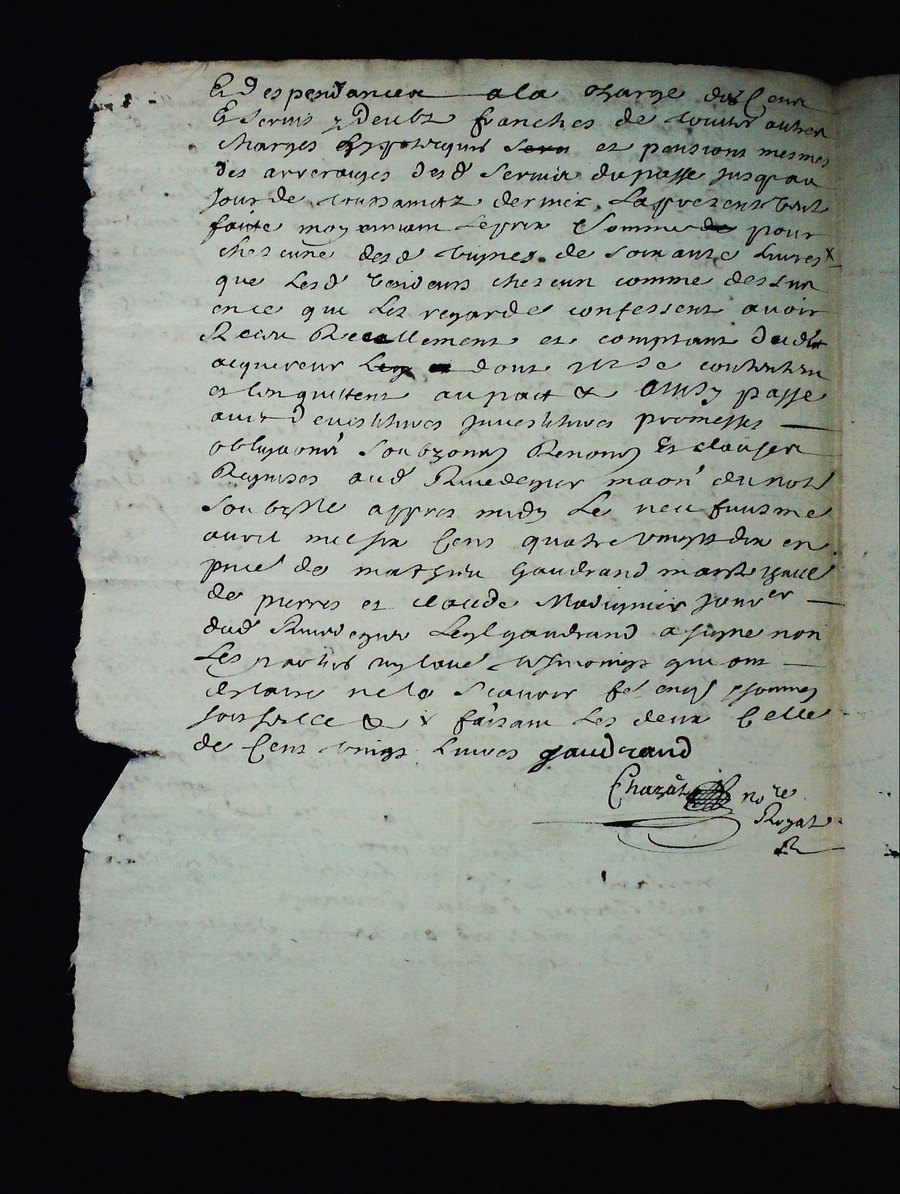 Et despendances a la charge des Cens
Et servis z deubz franches de toutes autres
charges ypotecques et pensions mesmes
des arreraiges desd servis du passe jusqu au
jour de toussainctz dernier. La presente vente
faite moyennant le prix & somme pour
chescune desd vignes de soixante livres x
que lesd vendeurs chescun comme dessus
en ce que les regarde confessent avoir
Receu Reellement et comptant dudit
acquereur dont se contentent
et l en quittent au pact & Ainsy passe
avec devestitures investitures promesses
obligaons soubzons Renons Et clauses
Requises aud Rivedegier maon du not
soubzne appres midy le neufiusme
avril mil six Cens quatre vingtz dix en
pnce de mathieu Gaudrand marchand
de pierres et claude Madignier jour er
dud Rivedegier Leql gaudrand a signe non
Les parties ny laue tesmoings qui ont
declaire ne le scavoir
faisant les deux Celle
de Cens vingt Livres gaudrand
Chazal no re
Royal